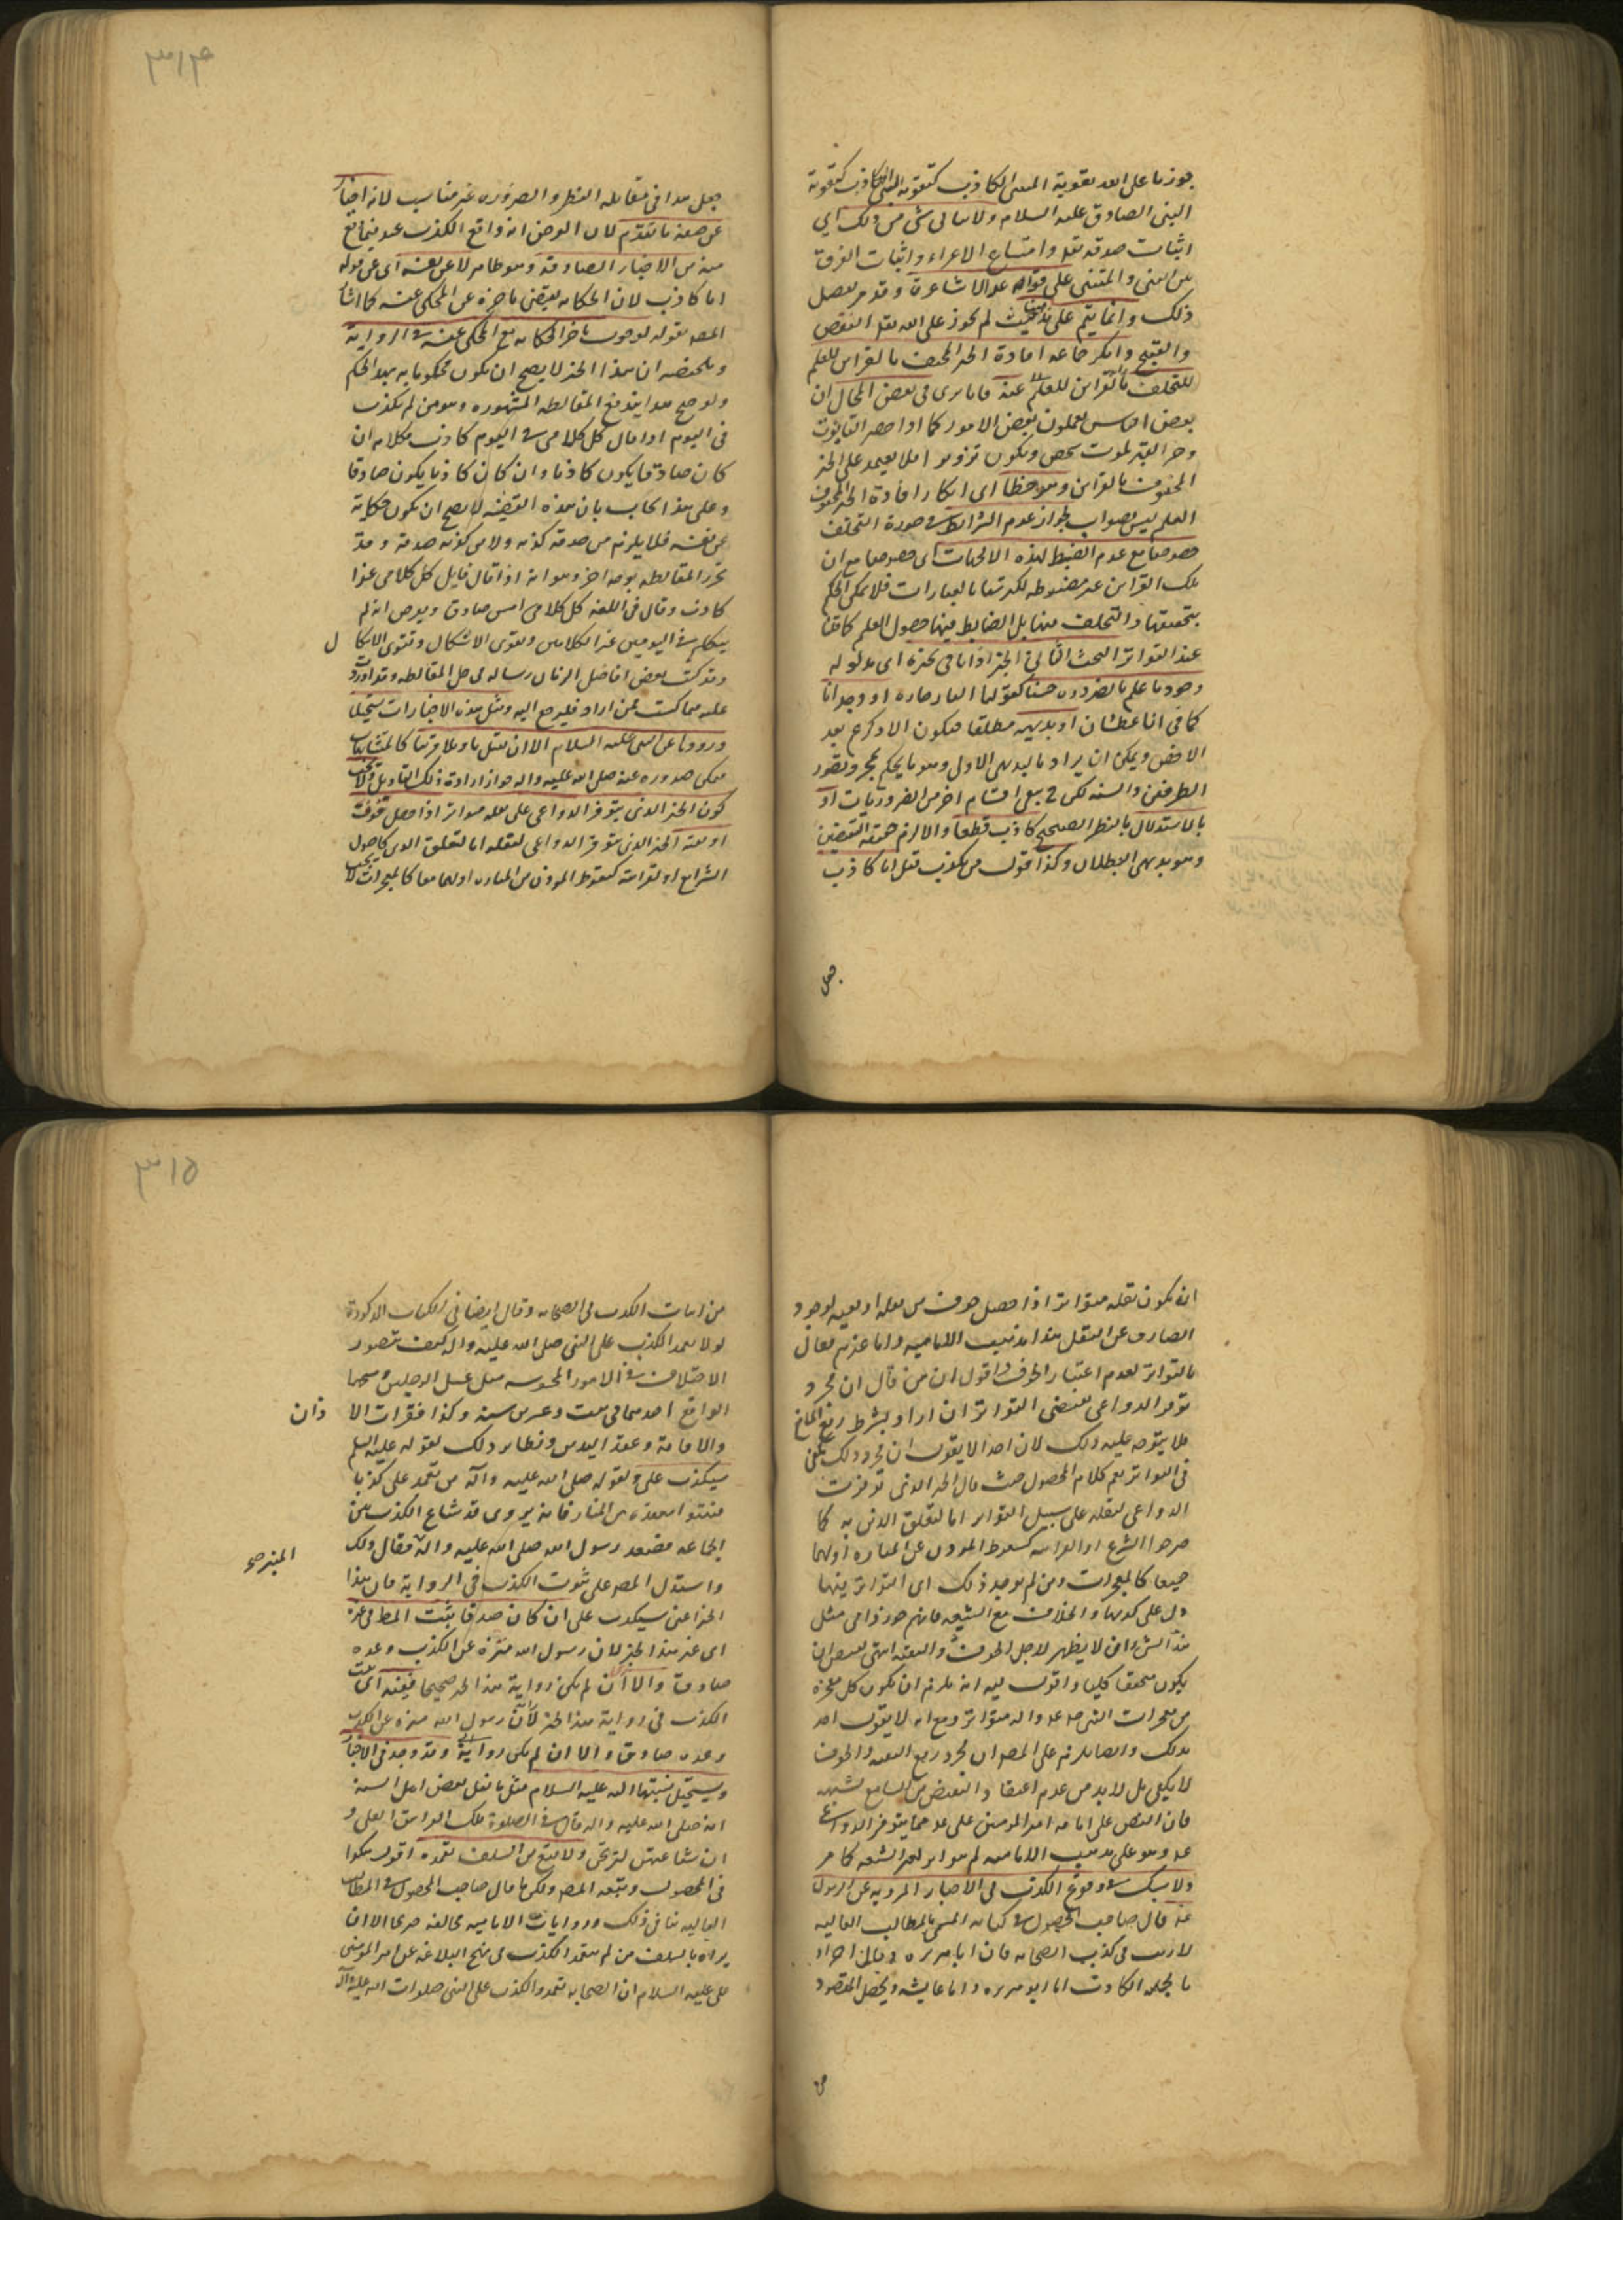 جوزنا على الله تقوية المتنبي الكاذب كتقوية
النبي الصادق عليه السلام ولا ينافي شيء من ذلك اي
اثبات صدقه تعالى وامتناع الاغراء واثبات الفرق
بين النبي والمتنبي على قواعد الاشاعرة وقد مر تفصيل
ذلك وانما يتم على مذهبنا حيث لم نجوز على الله تعالى النقص
والقبيح وانكر جماعة افادة الخبر المحتف بالقراين للعلم
للتخلف بالقراين للعلم عنه فانا نرى في بعض المحال ان
بعض الناس يعملون بعض الامور كما اذا حضر التابوت
وحفر القبر لموت شخص ويكون تزويرا فلا يعتمد على الخبر
المحفوف بالقراين وهو خطأ اي انكار افادة الخبر المحفوف
العلم ليس بصواب لجواز عدم الشرائط في صورة التخلف
خصوصا مع عدم الضبط لهذه
تلك القراين غير مضبوطة لكثرتها بالعبارات فلا يمكن الحكم
بتحققها والتخلف عنها بل الضابط فيها حصول العلم كما قلنا
عند التواتر البحث الثاني في الخبر اذا نافى مخبره اي مدلوله
وجود ما علم بالضرورة حسا كقولنا النار حارة او وجدانا
كما في انا عطشان او بديهة مطلقا فيكون الاعم بعد
الاخص ويمكن ان يراد بالبديهي الاول وهو ما يحكم بمجرد تصور
الطرفين والنسبة لكن يبقى اقسام اخر من الضروريات او
بالاستدلال بالنظر الصحيح كاذب قطعا والا لزم حقية النقيضين
وهو بديهي البطلان وكذا قول من لم يكذب قبل انا كاذب
جعل
٣١٤
جعل هذا في مقابلة النظر والضرورة غير مناسب لانه اخبار
عن صفة ما تقدم لان الفرض انه واقع الكذب عنه فيما وقع
منه من الاخبار الصادقة وهو ظاهر لا عن نفسه اي عن قوله
انا كاذب لان الحكاية يقتضي تاخره عن المحكي عنه كما اشار
المصه بقوله لوجوب تاخر الحكاية مع المحكي عنه في الرواية
وملخصه ان هذا الخبر لا يصح ان يكون محكوما به بهذا الحكم
ولو صح هذا يندفع المغالطة المشهورة وهو من لم يكذب
في اليوم اذا قال كل كلامي في اليوم كاذب فكلامه ان
كان صادقا يكون كاذبا وان كان كاذبا يكون صادقا
وعلى هذا يجاب بان هذه القضية لا يصح ان يكون حكاية
عن نفسه فلا يلزم من صدقه كذبه ولا من كذبه صدقه وقد
تقرر المغالطة بوجه اخر وهو انه اذا قال قايل كل كلامي غدا
كاذب وقال في الغد كل كلامي امس صادق ويفرض انه لم
يتكلم في اليومين غير الكلامين ويقوى الاشكال وتقوى الاشكا ل
وقد كتب بعض افاضل الزمان رسالة في حل المغالطة وقد اوردت
عليه مما كتبت فمن اراد فليرجع اليه ومثل هذه الاخبارات يستحيل
ورودها عن النبي عليه السلام الا ان يقبل تاويلا قريبا كالمتشابهات
فيمكن صدوره عنه صلى الله عليه واله جواز ارادة ذلك التاويل ولا يجب
كون الخبر الذي يتوفر الدواعي على نقله متواترا اذا حصل خوف
او تقية الخبر الذي يتوفر الدواعي لنقله اما لتعلق الدين كاصول
الشرايع او لغرابته كسقوط المؤذن من المنارة او لهما معا كالمعجزات لا يجب
ان يكون نقله متواترا اذا حصل خوف من نقله او تقية لوجود
الصارف عن النقل هذا مذهب الامامية واما غيرهم فقال
بالتواتر لعدم اعتبار الخوف واقول ان من قال ان مجرد
توفر الدواعي يقتضي التواتر ان اراد بشرط رفع المانع
فلا يتوجه عليه ذلك لان احدا لا يقول ان مجرد ذلك يكفي
في التواتر نعم كلام المحصول حيث قال الخبر الذي توفرت
الدواعي لنقله على سبيل التواتر اما لتعلق الدين به كما
صرحوا الشرع او الغرابة كسقوط المؤذن عن المنارة او لهما
جميعا كالمعجزات ومن لم يوجد ذلك اي التواتر فيها
دل على كذبها والخلاف مع الشيعة فانهم جوزوا في مثل
هذا الشيء ان لا يظهر لاجل الخوف والتقية انتهى
يكون محققا كليا واقول فيه انه يلزم ان يكون كل معجزة
من معجزات النبي صلى الله عليه واله متواترا ومع انه لا يقول احد
بذلك وايضا يلزم على المصه ان مجرد رفع التقية والخوف
لا يكفي بل لا بد من عدم اعتقاد النقيض من السامع لشبهة
فان النص على امامة امير المؤمنين علي عه مما يتوفر الدواعي
عليه وهو على مذهب الامامية لم يتواتر لغير الشيعة كما مر
ولا شك في وقوع الكذب في الاخبار المروية عن الرسول
عه قال صاحب المحصول في كتابه المسمى بالمطالب العالية
لا ريب في كذب الصحابة فان ابا هريرة
بالجملة الكاذب اما ابو هريرة واما عايشة ويحصل المقصود
من
٣١٥
من اثبات الكذب في الصحابة وقال ايضا في الكتاب المذكورة
لولا تعمد الكذب على النبي صلى الله عليه واله كيف يتصور
الاختلاف في الامور المحسوسة مثل غسل الرجلين ومسحهما
الواقع احدهما في نيف وعشرين سنة وكذا فقرات الا ذان
والاقامة وعقد اليدين ونظاير ذلك لقوله عليه السلم
سيكذب علي ولقوله صلى الله عليه وآله من تعمد علي كذبا
فليتبوأ مقعده من النار فانه يروى قد شاع الكذب بين
الجماعة فصعد رسول الله صلى الله عليه وآله فقال ذلك المنبر صح
واستدل المصه على ثبوت الكذب في الرواية فان هذا
الخبر اعني سيكذب علي ان كان صدقا ثبت المط في غيره
اي غير هذا الخبر لان رسول الله منزه عن الكذب وعده
صادق والا اي ان لم يكن رواية هذا الخبر صحيحا ففيه اي ثبت
الكذب في رواية هذا الخبر لان رسول الله منزه عن الكذب
وعده صادق والا ان لم يكن رواية وقد وجد في الاخبار
ويستحيل نسبتها اليه عليه السلام مثل ما نقل بعض اهل السنة
انه صلى الله عليه واله قال في الصلوة تلك الغرانيق العلى و
ان شفاعتهن لترتجى ولا يقع من السلف تعمده اقول هكذا
في المحصول وتبعه المصه ولكن ما قال صاحب المحصول في المطالب
العالية ينافي ذلك وروايات الامامية مخالفة صريحا الا ان
يراد بالسلف من لم يتعمد الكذب في نهج البلاغة عن امير المؤمنين
علي عليه السلام ان الصحابة تعمدوا الكذب على النبي صلوات الله عليه وآله